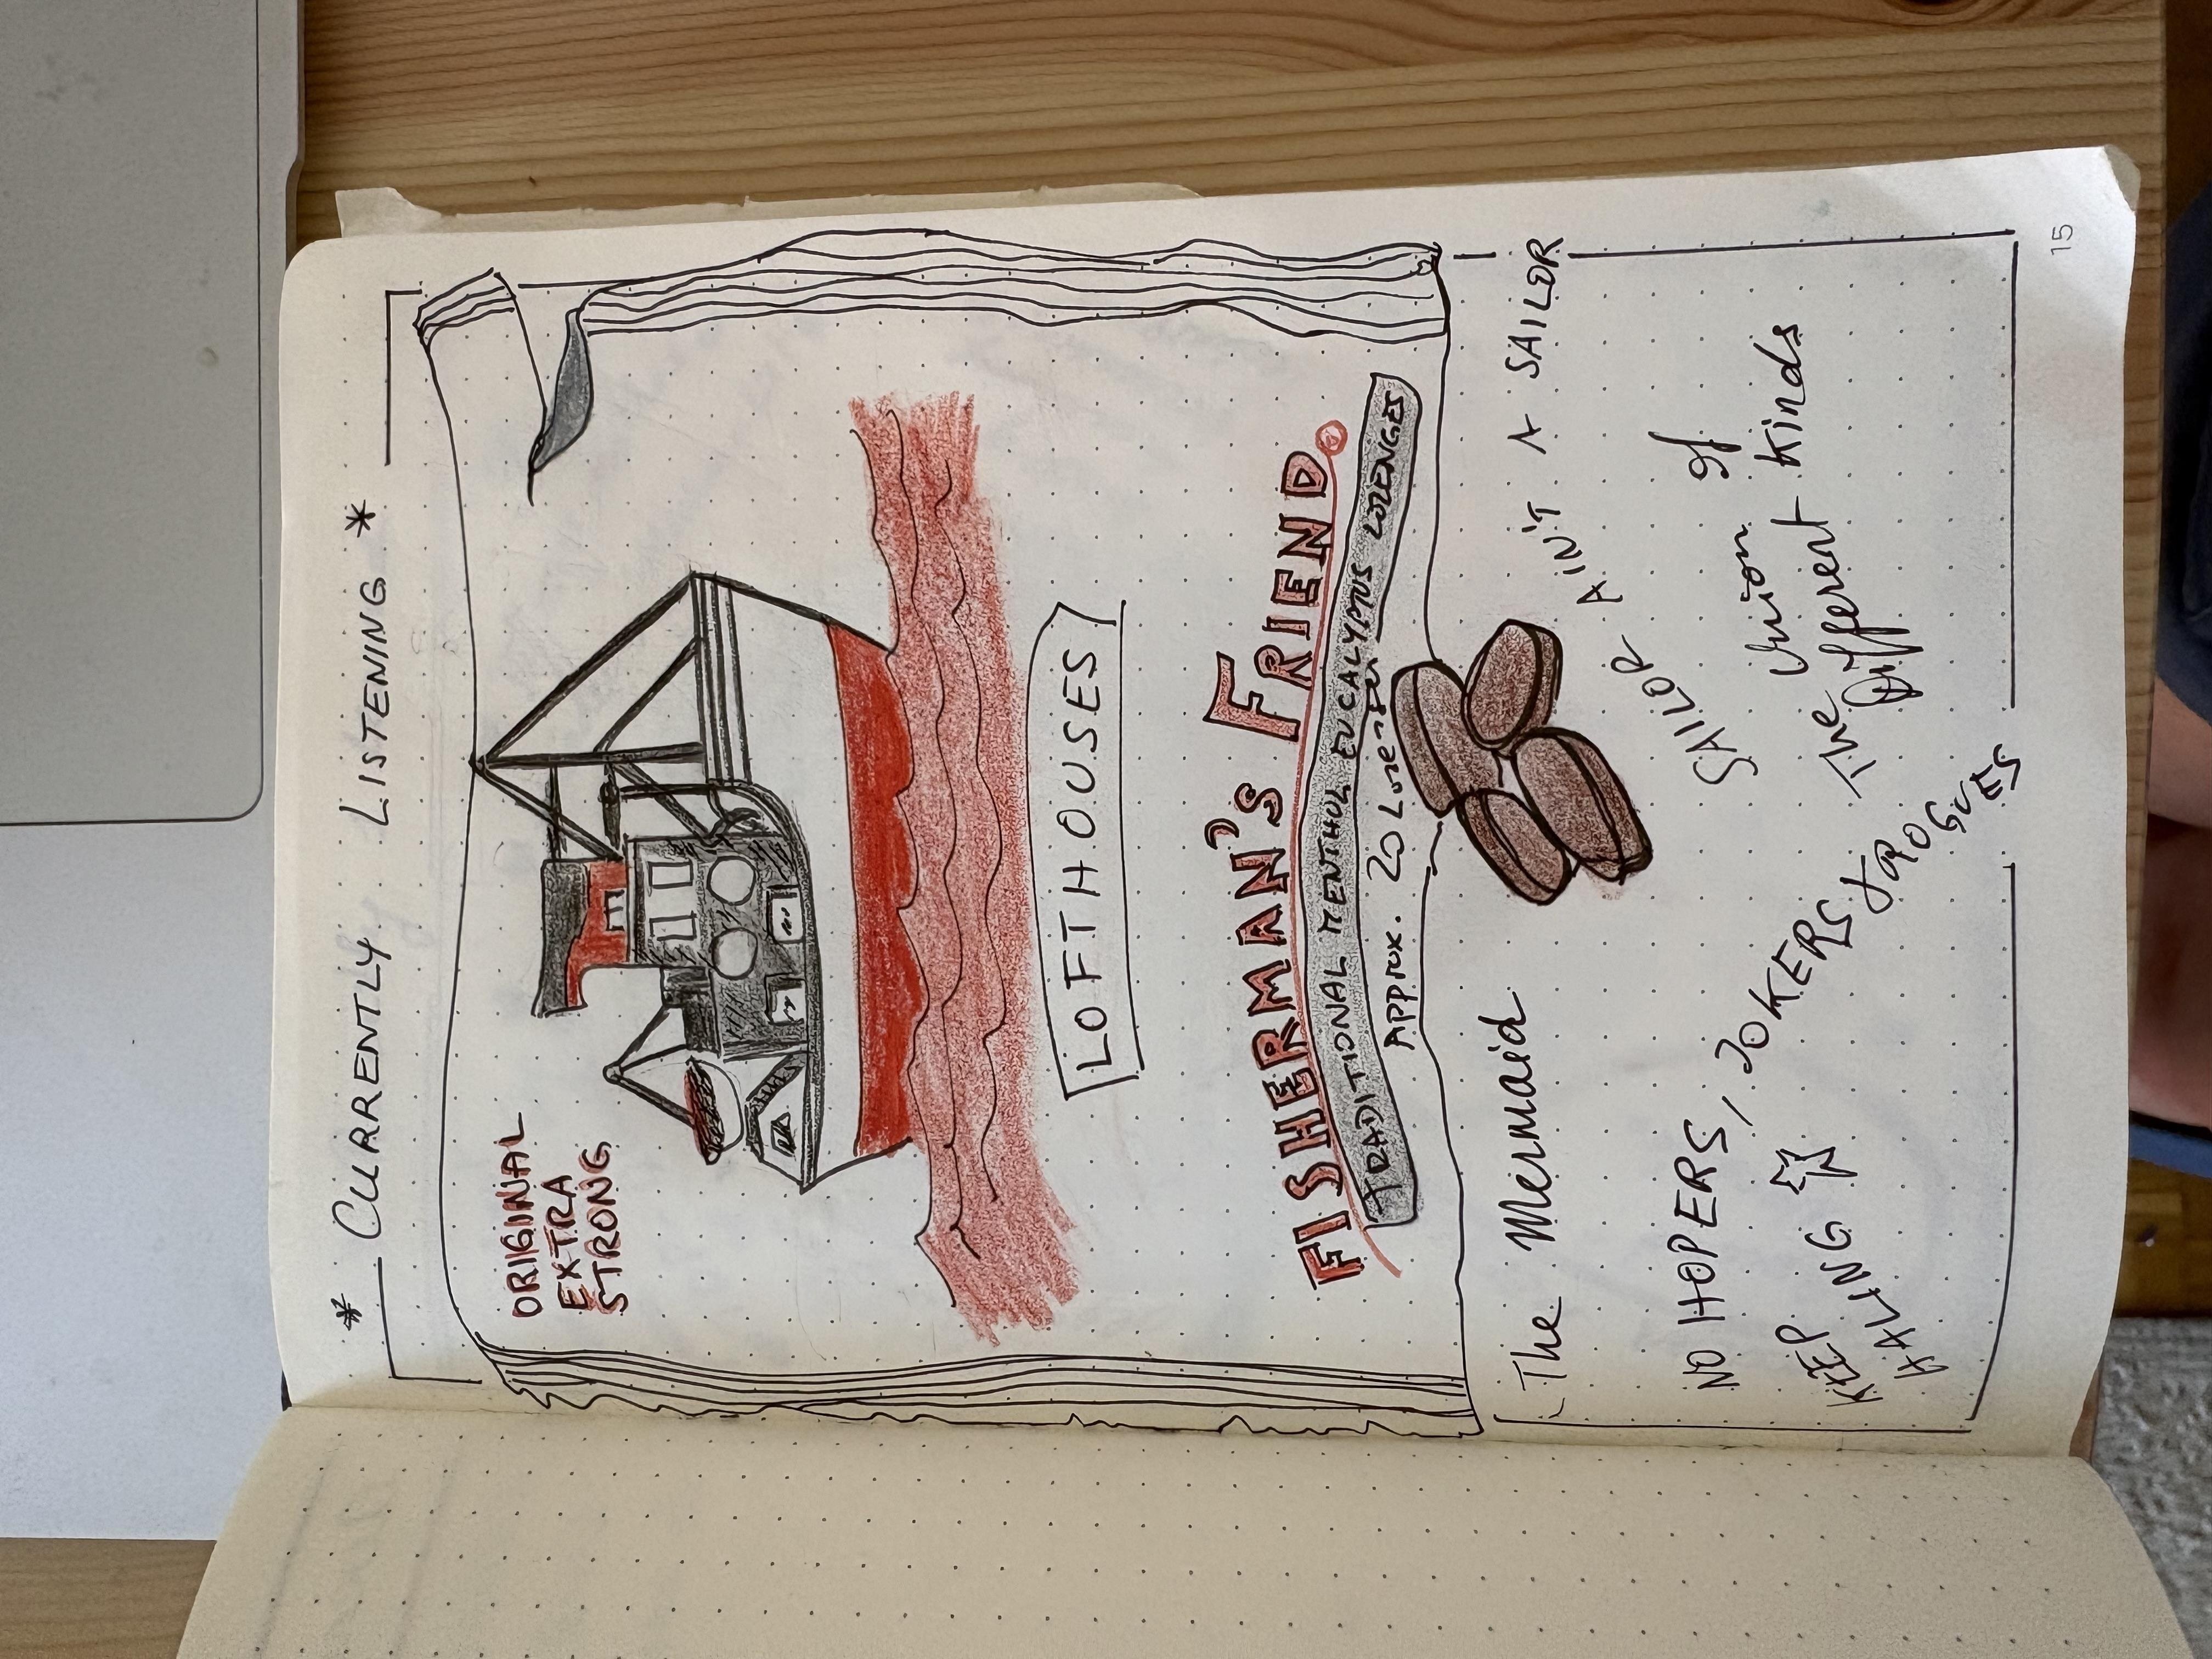 * CURRENTLY LISTENING *
ORIGINAL
EXTRA
STRONG
LOFTHOUSES
FISHERMAN'S FRIEND
TRADITIONAL MENTHOL EUCALYPTUS LOZENGES
APPROX. 20 Lozenges
The Mermaid
SAILOR AIN'T A SAILOR
NO HOPERS, JOKERS & ROGUES
SAILOR
KEEP HALING
The Union of Different Kinds
15